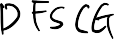 D FS CG